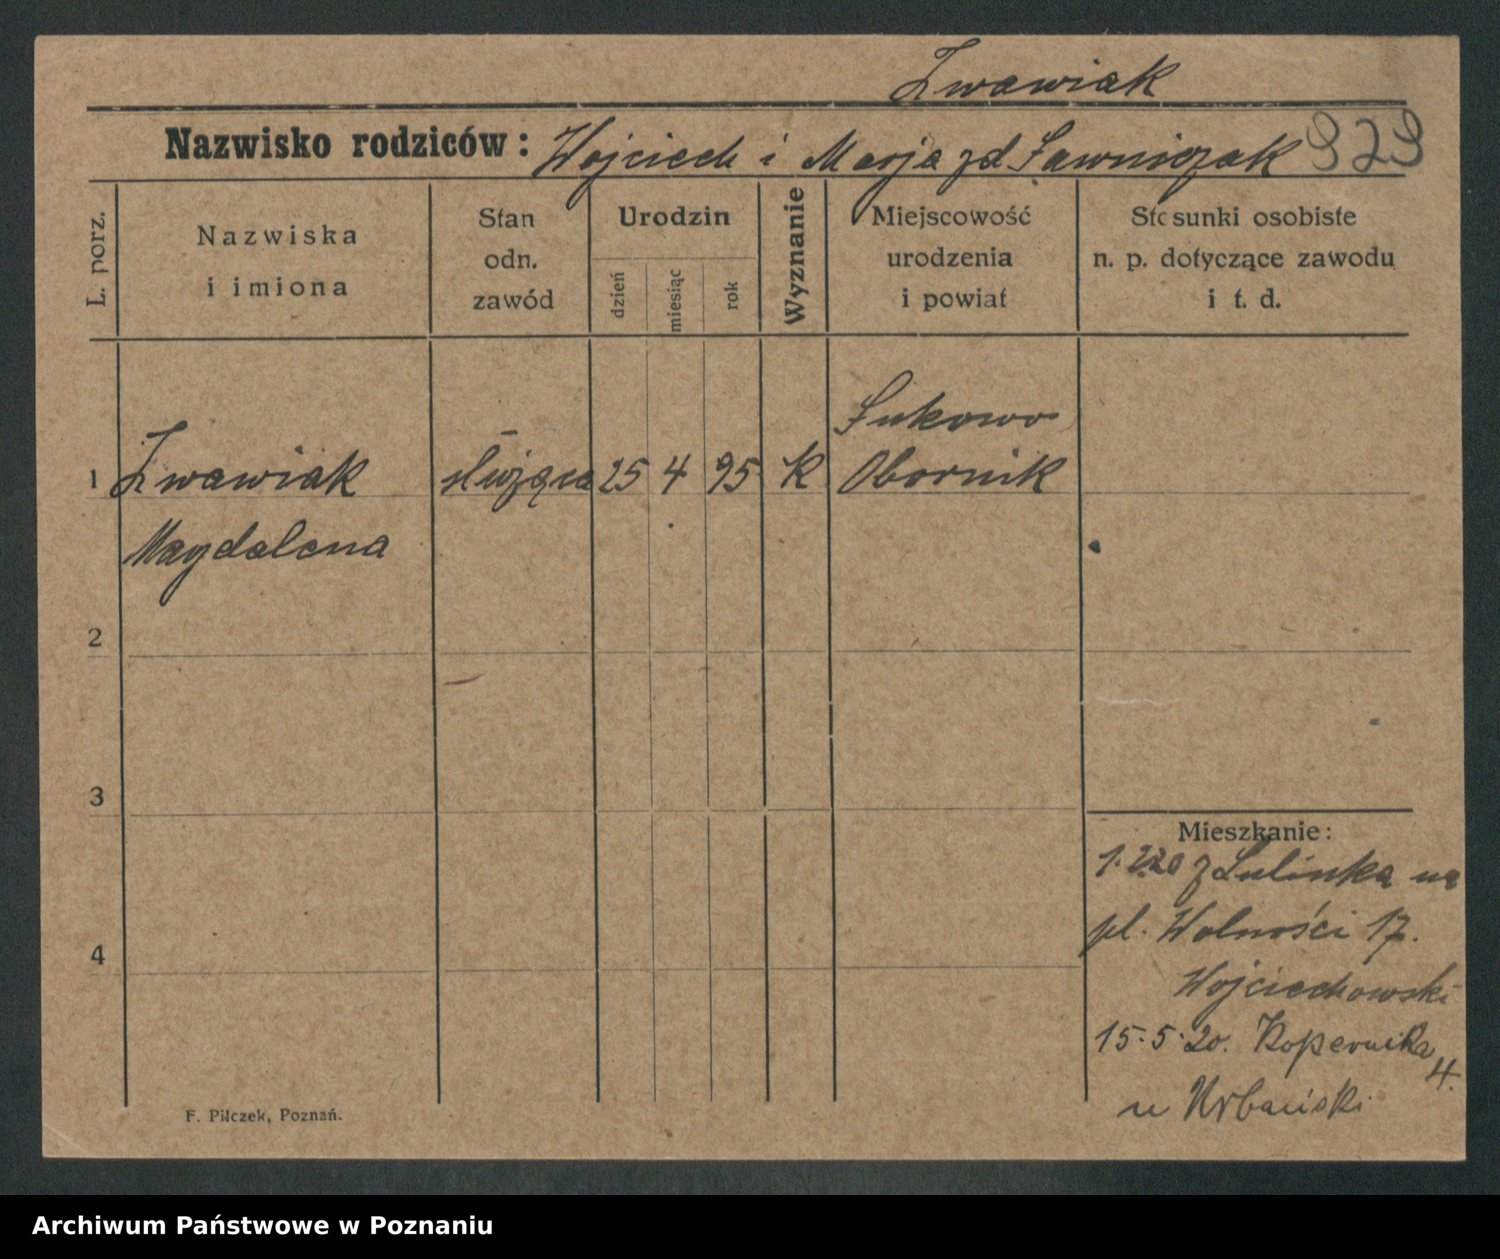 Zwawiak
Nazwisko rodziców: Wojciech i Marja zd. Ławniczak 929
L. porz.
Nazwiska
i imiona
Stan
odn.
zawód
Urodzin
dzień
miesiąc
rok
Wyznanie
Miejscowość
urodzenia
i powiat
Stosunki osobiste
n. p. dotyczące zawodu
i t. d.
Łukowo
1 Zwawiak służąca 25 4 95 k Obornik
Magdalena
2
3
Mieszkanie:
1.2.20 z Lulinka na
pl. Wolności 17.
4
Wojciechowski
15.5.20. Kopernika
4.
u Urbański
F. Pilczek, Poznań.
Archiwum Państwowe w Poznaniu